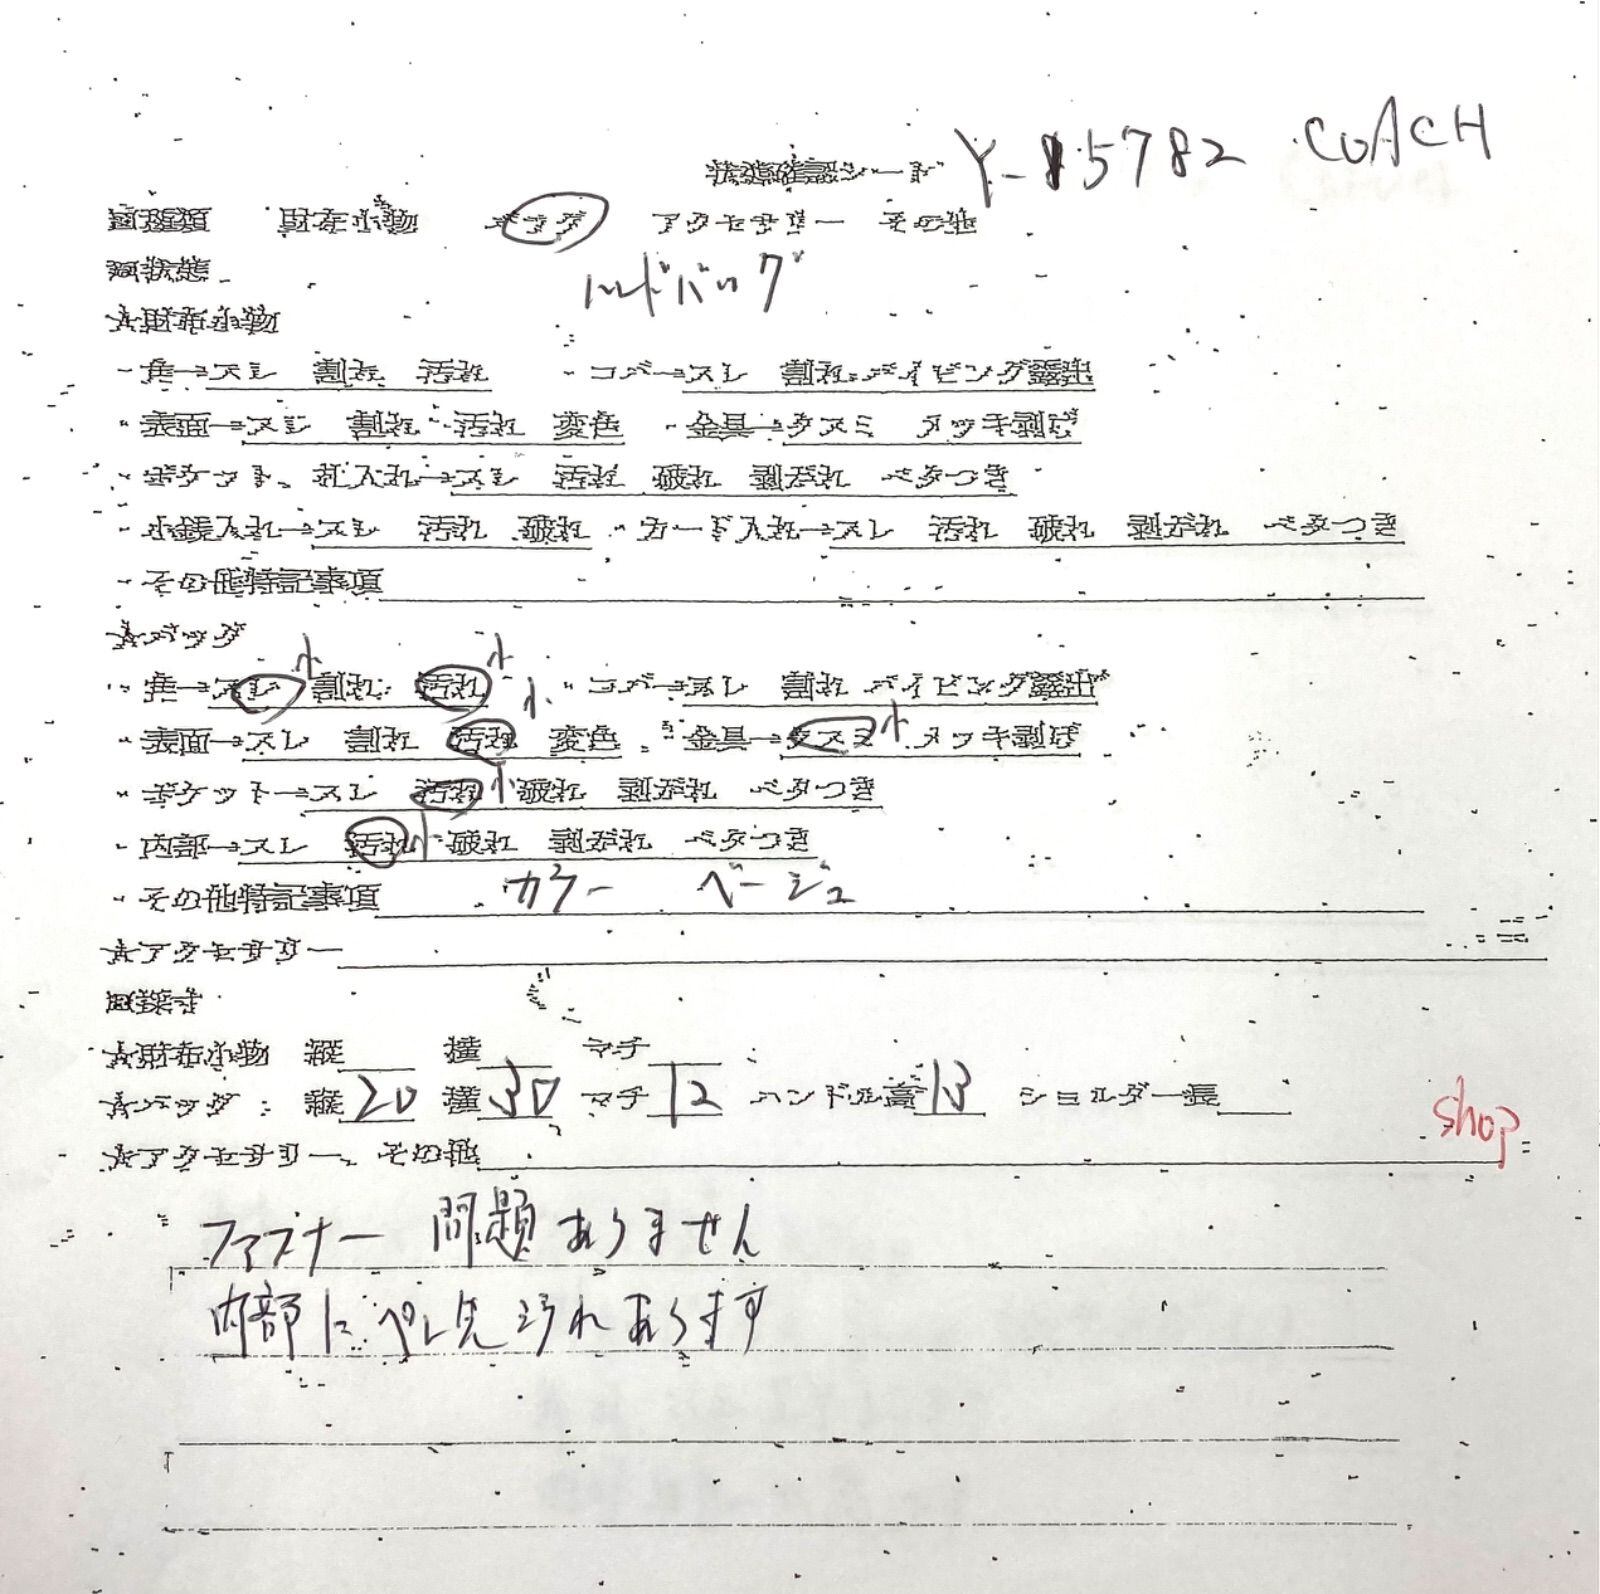 状態確認シート Y-15782 COACH
種類 財布小物 バッグ アクセサリー その他
ハンドバッグ
状態
★財布小物
・角→スレ 割れ 汚れ ・コバ→スレ 割れ パイピング露出
・表面→スレ 割れ 汚れ 変色 ・金具→クスミ メッキ剥げ
・ポケット、札入れ→スレ 汚れ 破れ 剥がれ ベタつき
・小銭入れ→スレ 汚れ 破れ ・カード入れ→スレ 汚れ 破れ 剥がれ ベタつき
・その他特記事項
★バッグ
・角→スレ小 割れ 汚れ小 ・コバ→スレ 割れ パイピング露出
・表面→スレ 割れ 汚れ小 変色 ・金具→クスミ小 メッキ剥げ
・ポケット→スレ 汚れ小 破れ 剥がれ ベタつき
・内部→スレ 汚れ小 破れ 剥がれ ベタつき
・その他特記事項 カラー ベージュ
★アクセサリー
採寸
★財布小物 縦 横 マチ
★バッグ:縦20 横30 マチ12 ハンドル高13 ショルダー長
shop
★アクセサリー、その他
ファスナー 問題ありません
内部に ペン先 汚れあります